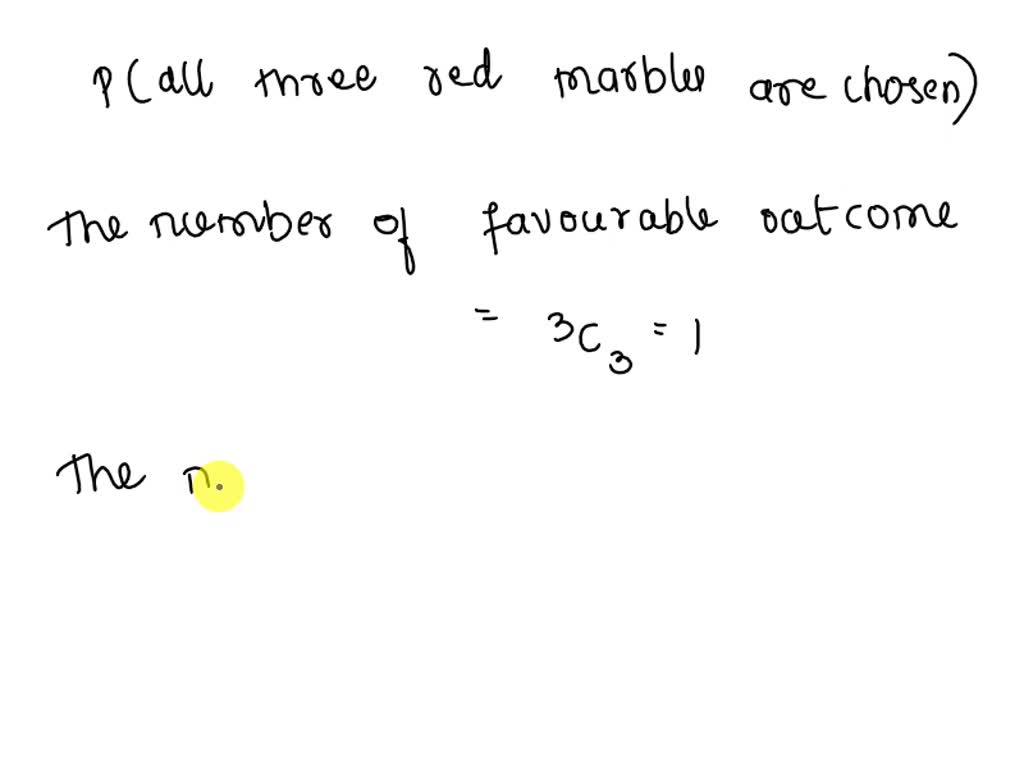 P(all three red marbles are chosen)
The number of favourable outcome
= 3C3 = 1
The n